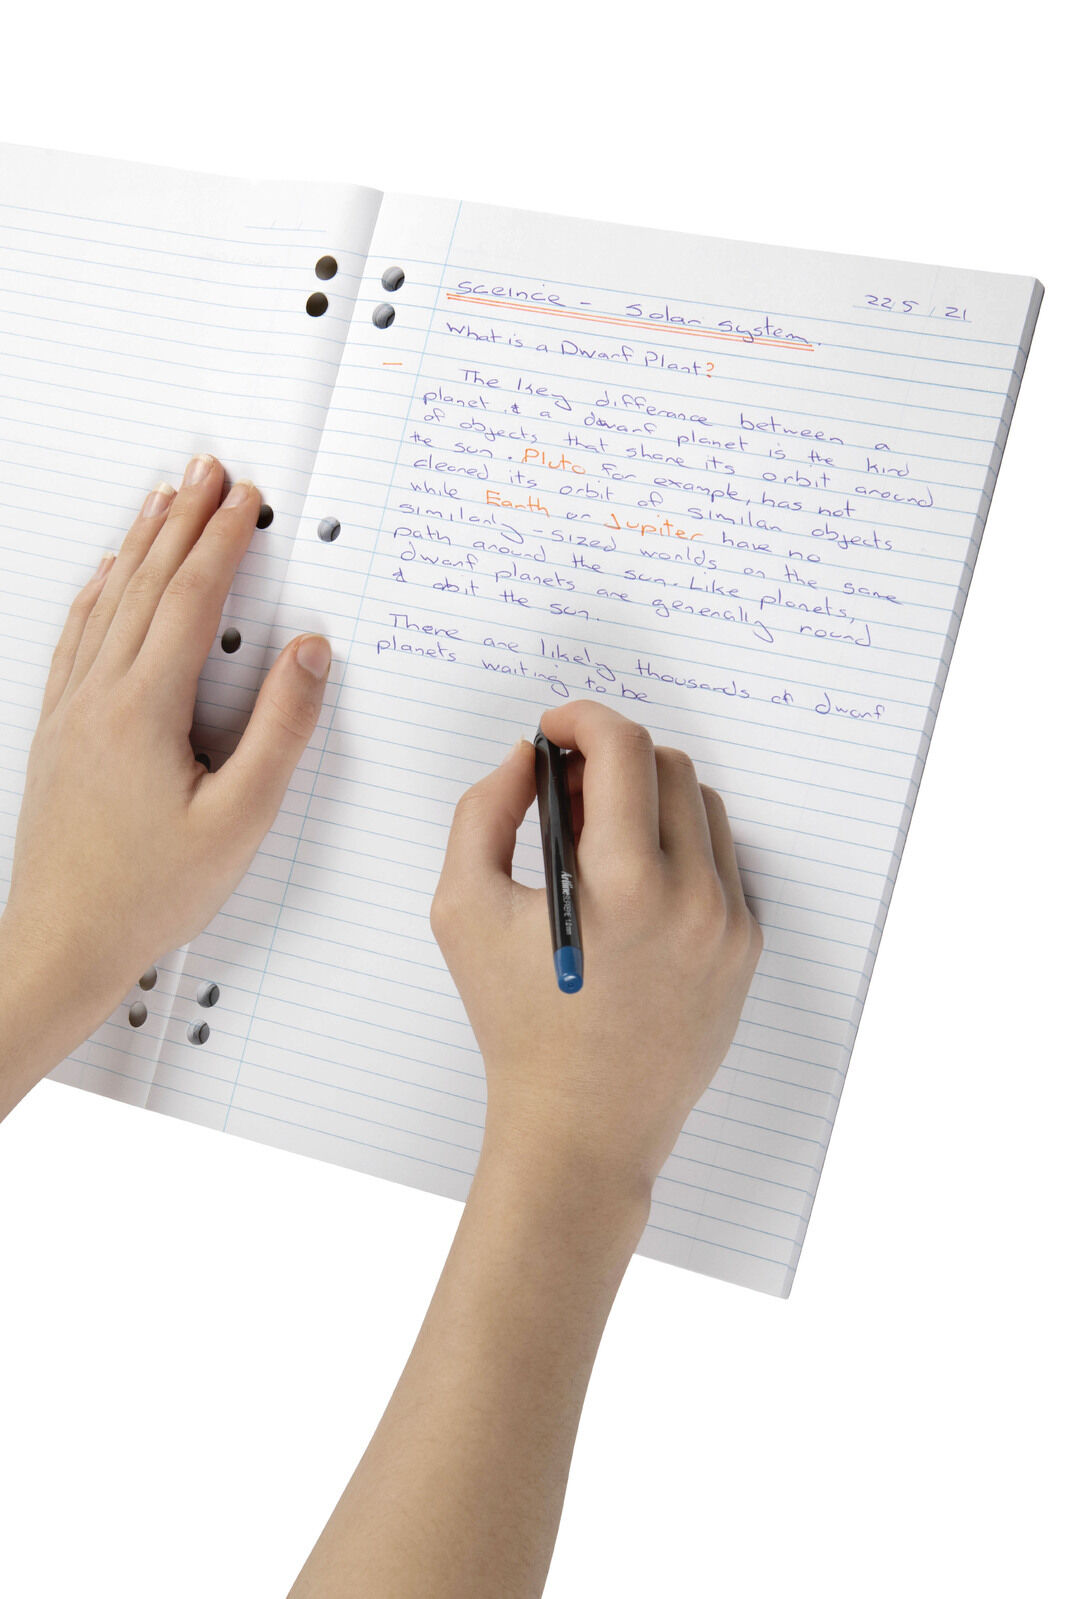 sceince - Solar System.
22/5/21
What is a Dwarf Plant?
The key difference between a
planet & a dwarf planet is the kind
of objects that share its orbit around
the sun. Pluto for example, has not
cleared its orbit of similar objects
while Earth or Jupiter have no
similarly-sized worlds on the same
path around the sun. Like planets,
dwarf planets are generally round
& obit the sun.
There are likely thousands of dwarf
planets waiting to be
Artline SUPREME 1.0mm